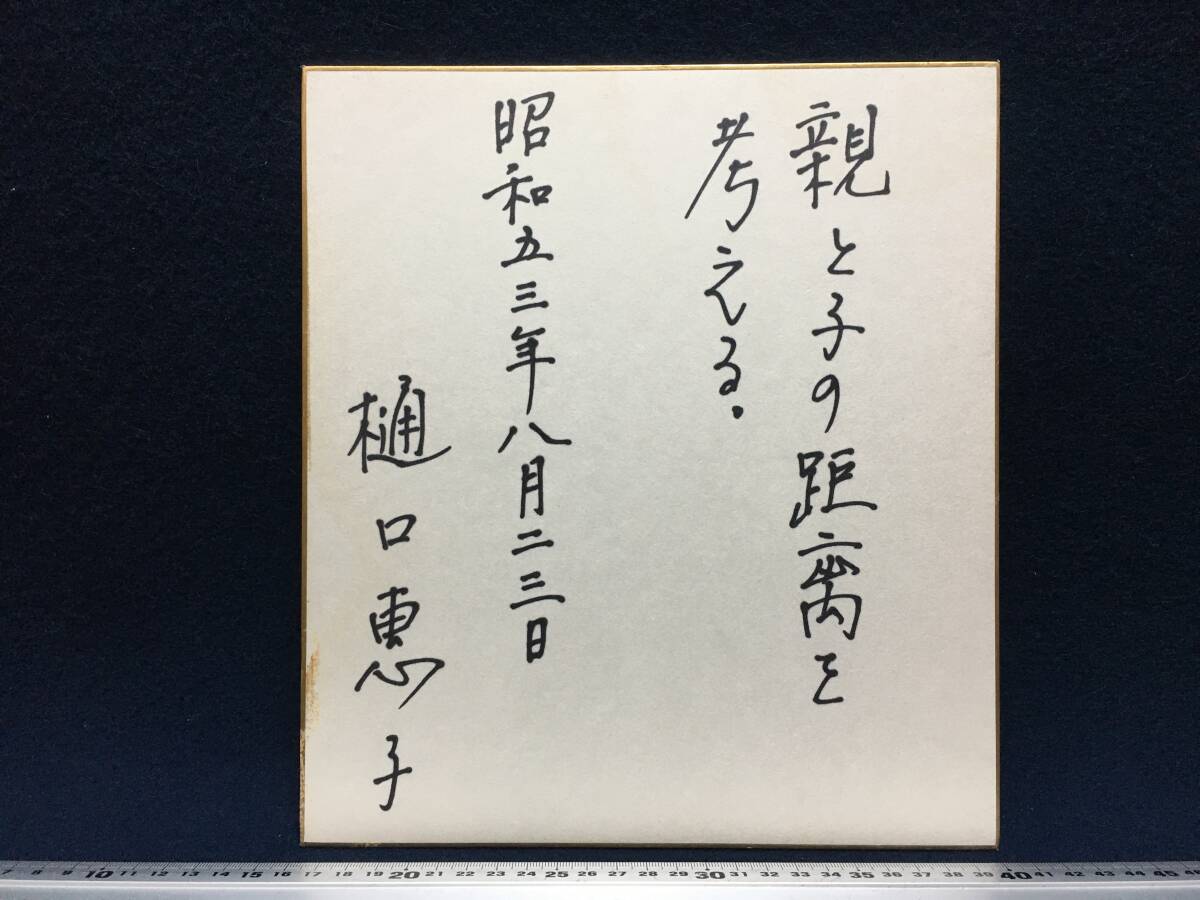 親と子の距離を
考える.
昭和五三年八月二三日
樋口恵子
7 8 9 10 11 12 13 14 15 16 17 18 19 20 21 22 23 24 25 26 27 28 29 30 31 32 33 34 35 36 37 38 39 40 41 42 43 44 45